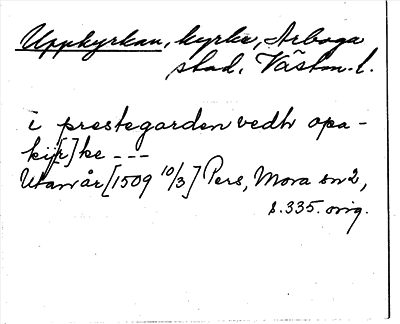 Uppkyrkan, kyrka, Arboga
stad, Västm. l.
i prestegarden vedh opa-
ki[r]ke ---
Utan år [1509 10/3] Pers, Mora sn 2,
s. 335. orig.